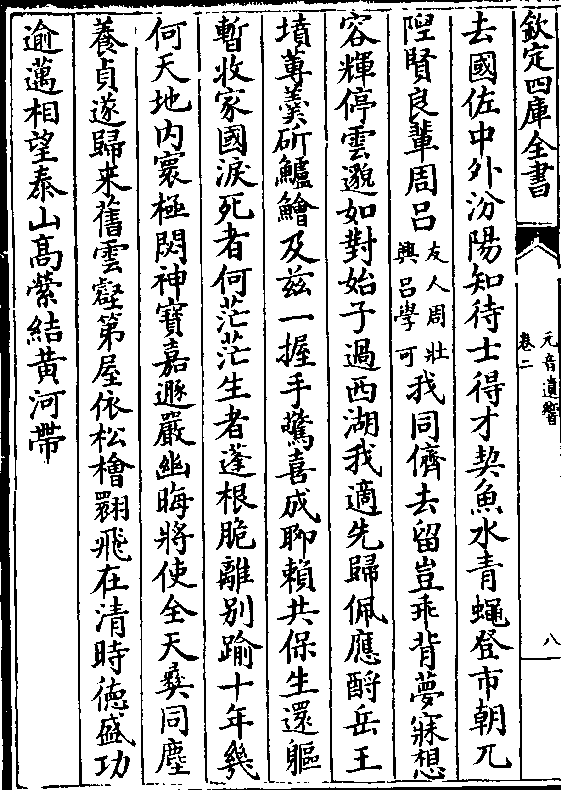 欽定四庫全書
元音遺響
卷二
八
去國佐中外汾陽知待士得才契魚水青蠅登市朝兀
陧賢良輩周吕友人周壯興吕學可我同儕去留豈乖背夢寐想
容輝停雲邈如對始子過西湖我適先歸佩應酹岳王
墳蓴羮斫鱸鱠及兹一握手驚喜成聊賴共保生還軀
暫收家國淚死者何茫茫生者蓬根脆離别踰十年幾
何天地内寰極閟神寶嘉遯嚴幽晦將使全天彛同塵
養貞遂歸来舊雲壑第屋依松檜翾飛在清時徳盛功
逾邁相望泰山髙縈結黄河帶